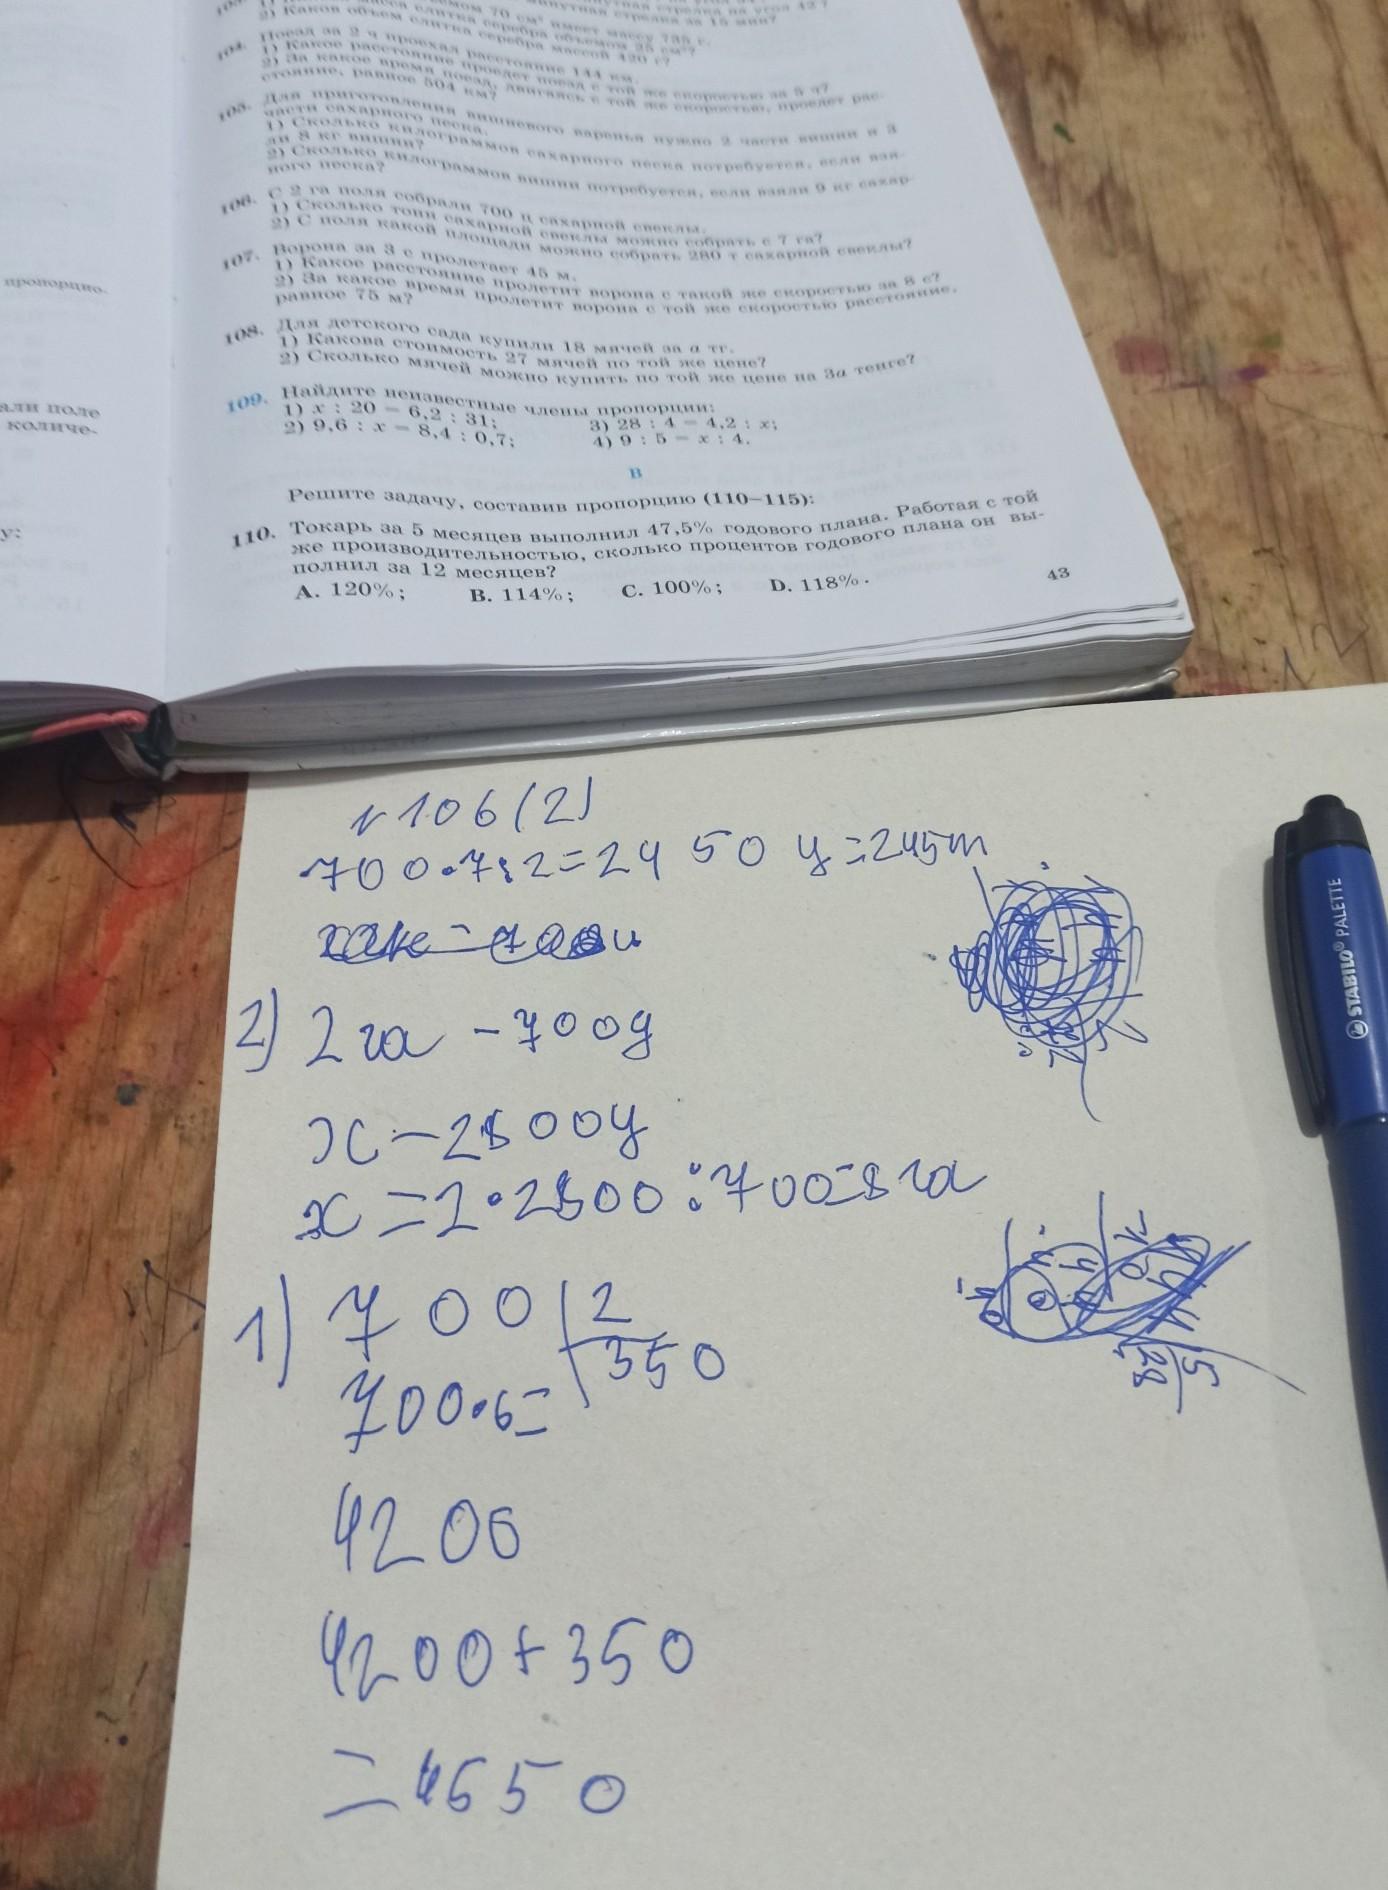 2) Каков объем слитка серебра массой 420 г?
104. Поезд за 2 ч проехал расстояние 144 км.
1) Какое расстояние проедет поезд с той же скоростью за 5 ч?
2) За какое время поезд, двигаясь с той же скоростью, проедет рас-
стояние, равное 504 км?
105. Для приготовления вишневого варенья нужно 2 части вишни и 3
части сахарного песка.
1) Сколько килограммов сахарного песка потребуется, если взя-
ли 8 кг вишни?
2) Сколько килограммов вишни потребуется, если взяли 9 кг сахар-
ного песка?
106. С 2 га поля собрали 700 ц сахарной свеклы.
1) Сколько тонн сахарной свеклы можно собрать с 7 га?
2) С поля какой площади можно собрать 280 т сахарной свеклы?
107. Ворона за 3 с пролетает 45 м.
1) Какое расстояние пролетит ворона с такой же скоростью за 8 с?
2) За какое время пролетит ворона с той же скоростью расстояние,
равное 75 м?
108. Для детского сада купили 18 мячей за a тг.
1) Какова стоимость 27 мячей по той же цене?
2) Сколько мячей можно купить по той же цене на 3a тенге?
109. Найдите неизвестные члены пропорции:
1) x : 20 = 6,2 : 31; 3) 28 : 4 = 4,2 : x;
2) 9,6 : x = 8,4 : 0,7; 4) 9 : 5 = x : 4.
В
Решите задачу, составив пропорцию (110–115):
110. Токарь за 5 месяцев выполнил 47,5% годового плана. Работая с той
же производительностью, сколько процентов годового плана он вы-
полнил за 12 месяцев?
A. 120%; B. 114%; C. 100%; D. 118%.
43
пропорцио-
али поле
количе-
у:
№106(2)
700·7:2=2450 ц=245т
2) 2 га – 700ц
x – 2800ц
x = 2·2800:700=8 га
1) 700 | 2
350
700·6=
4200
4200+350
=4650
STABILO® PALETTE